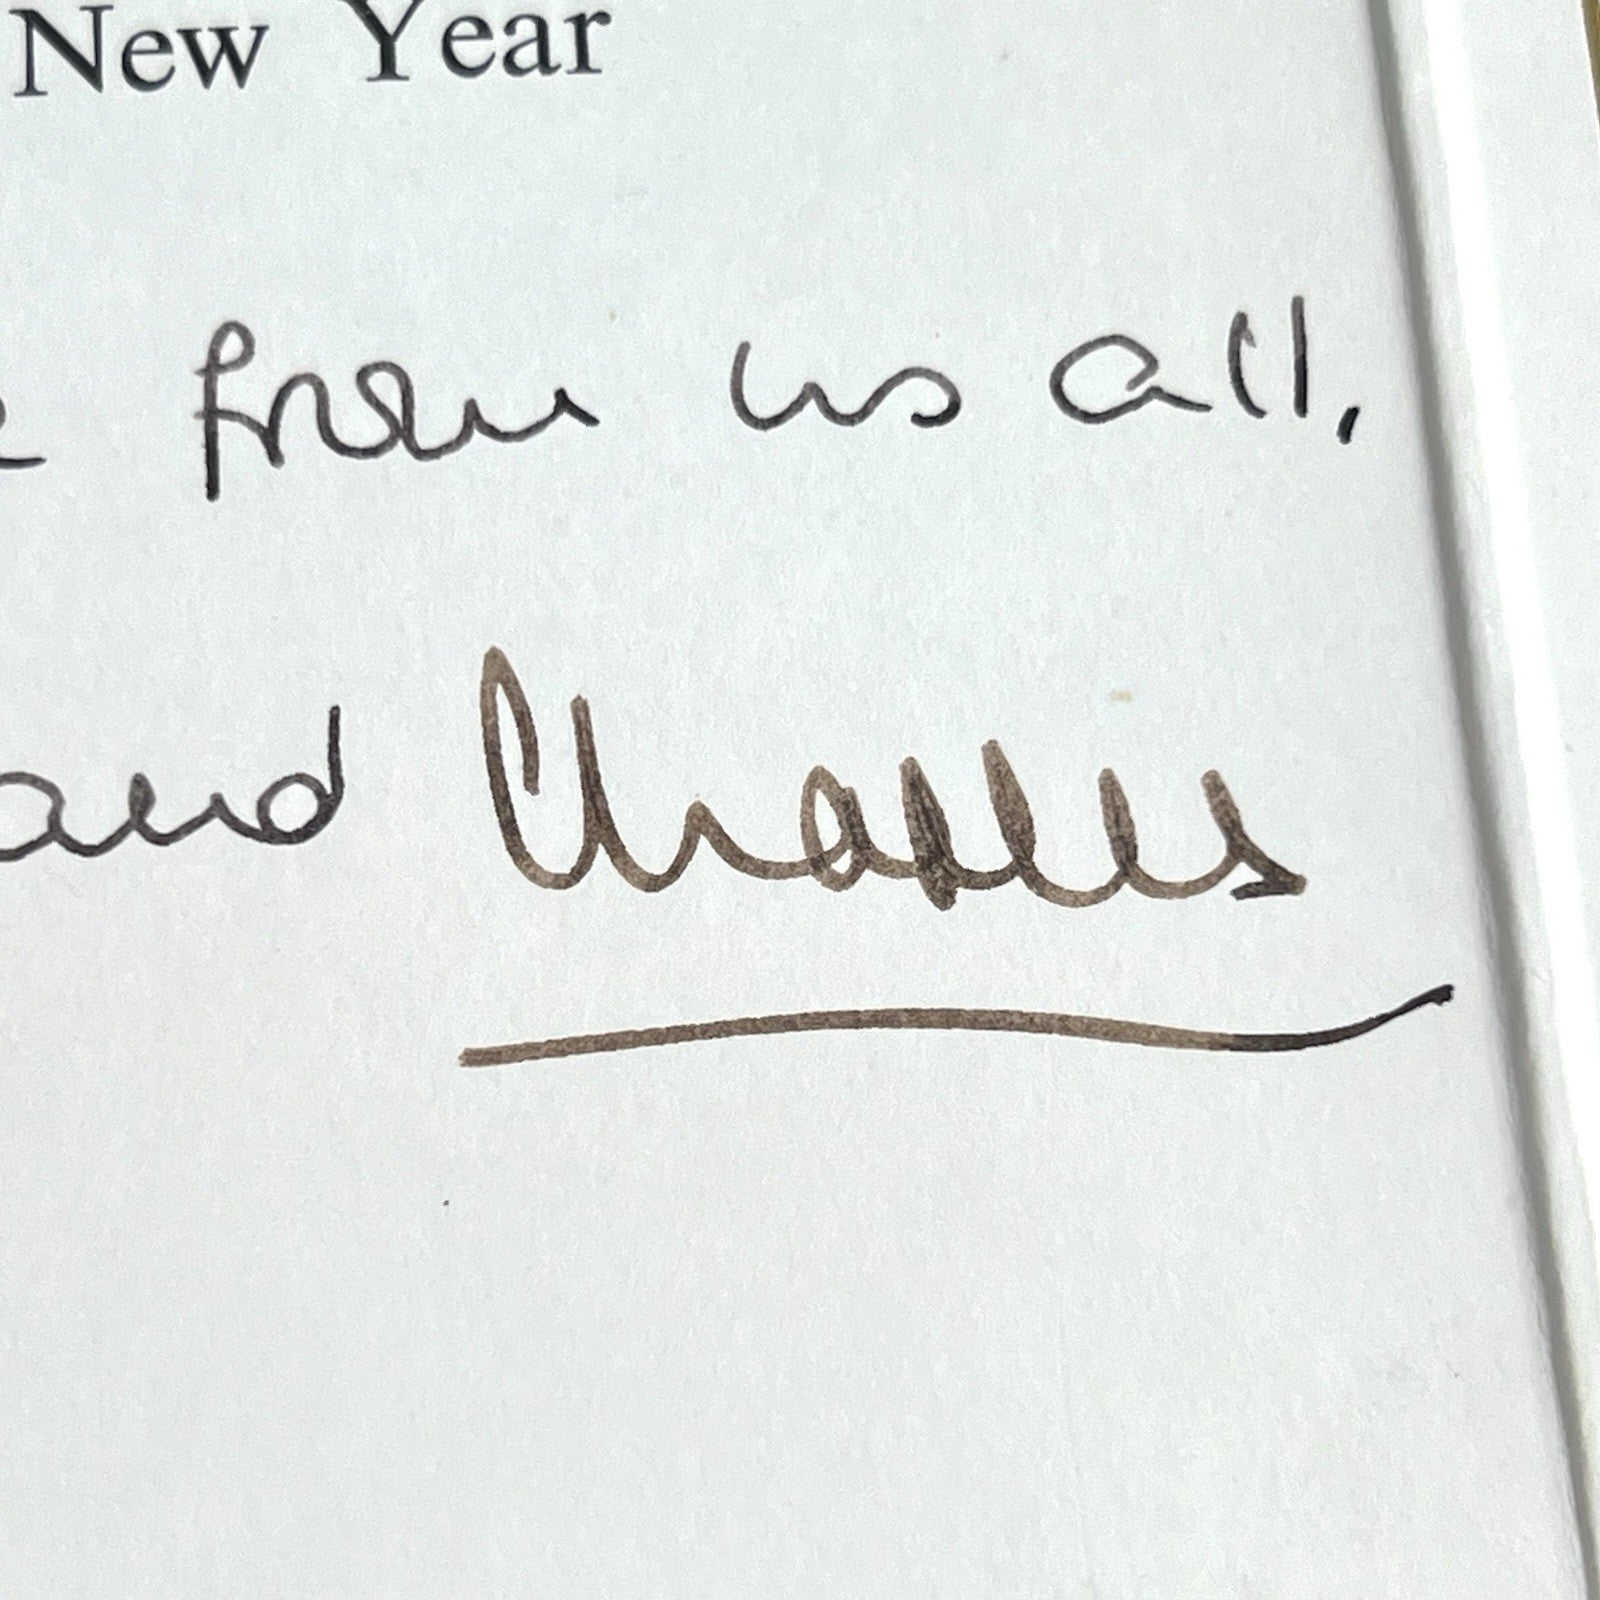 New Year
from us all,
and Charles